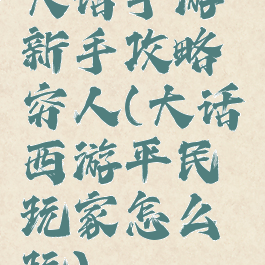 大话手游
新手攻略
穷人(大话
西游平民
玩家怎么
玩)